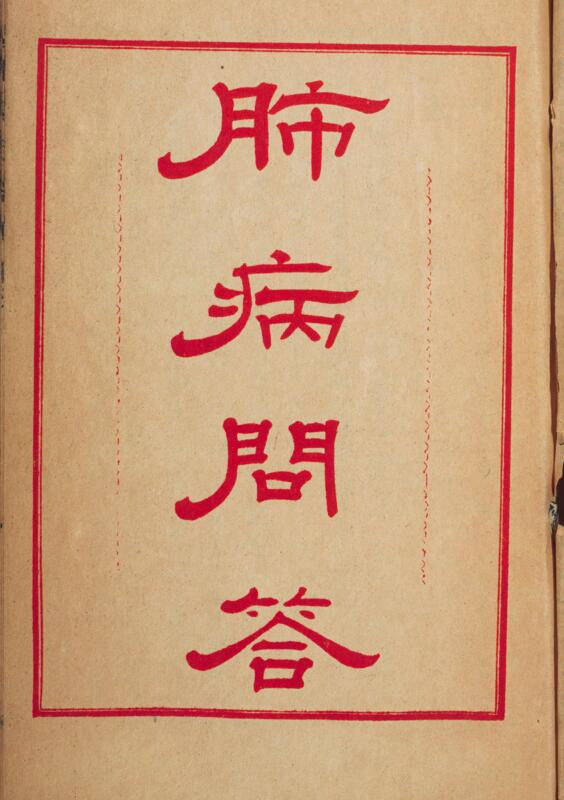 肺病問答